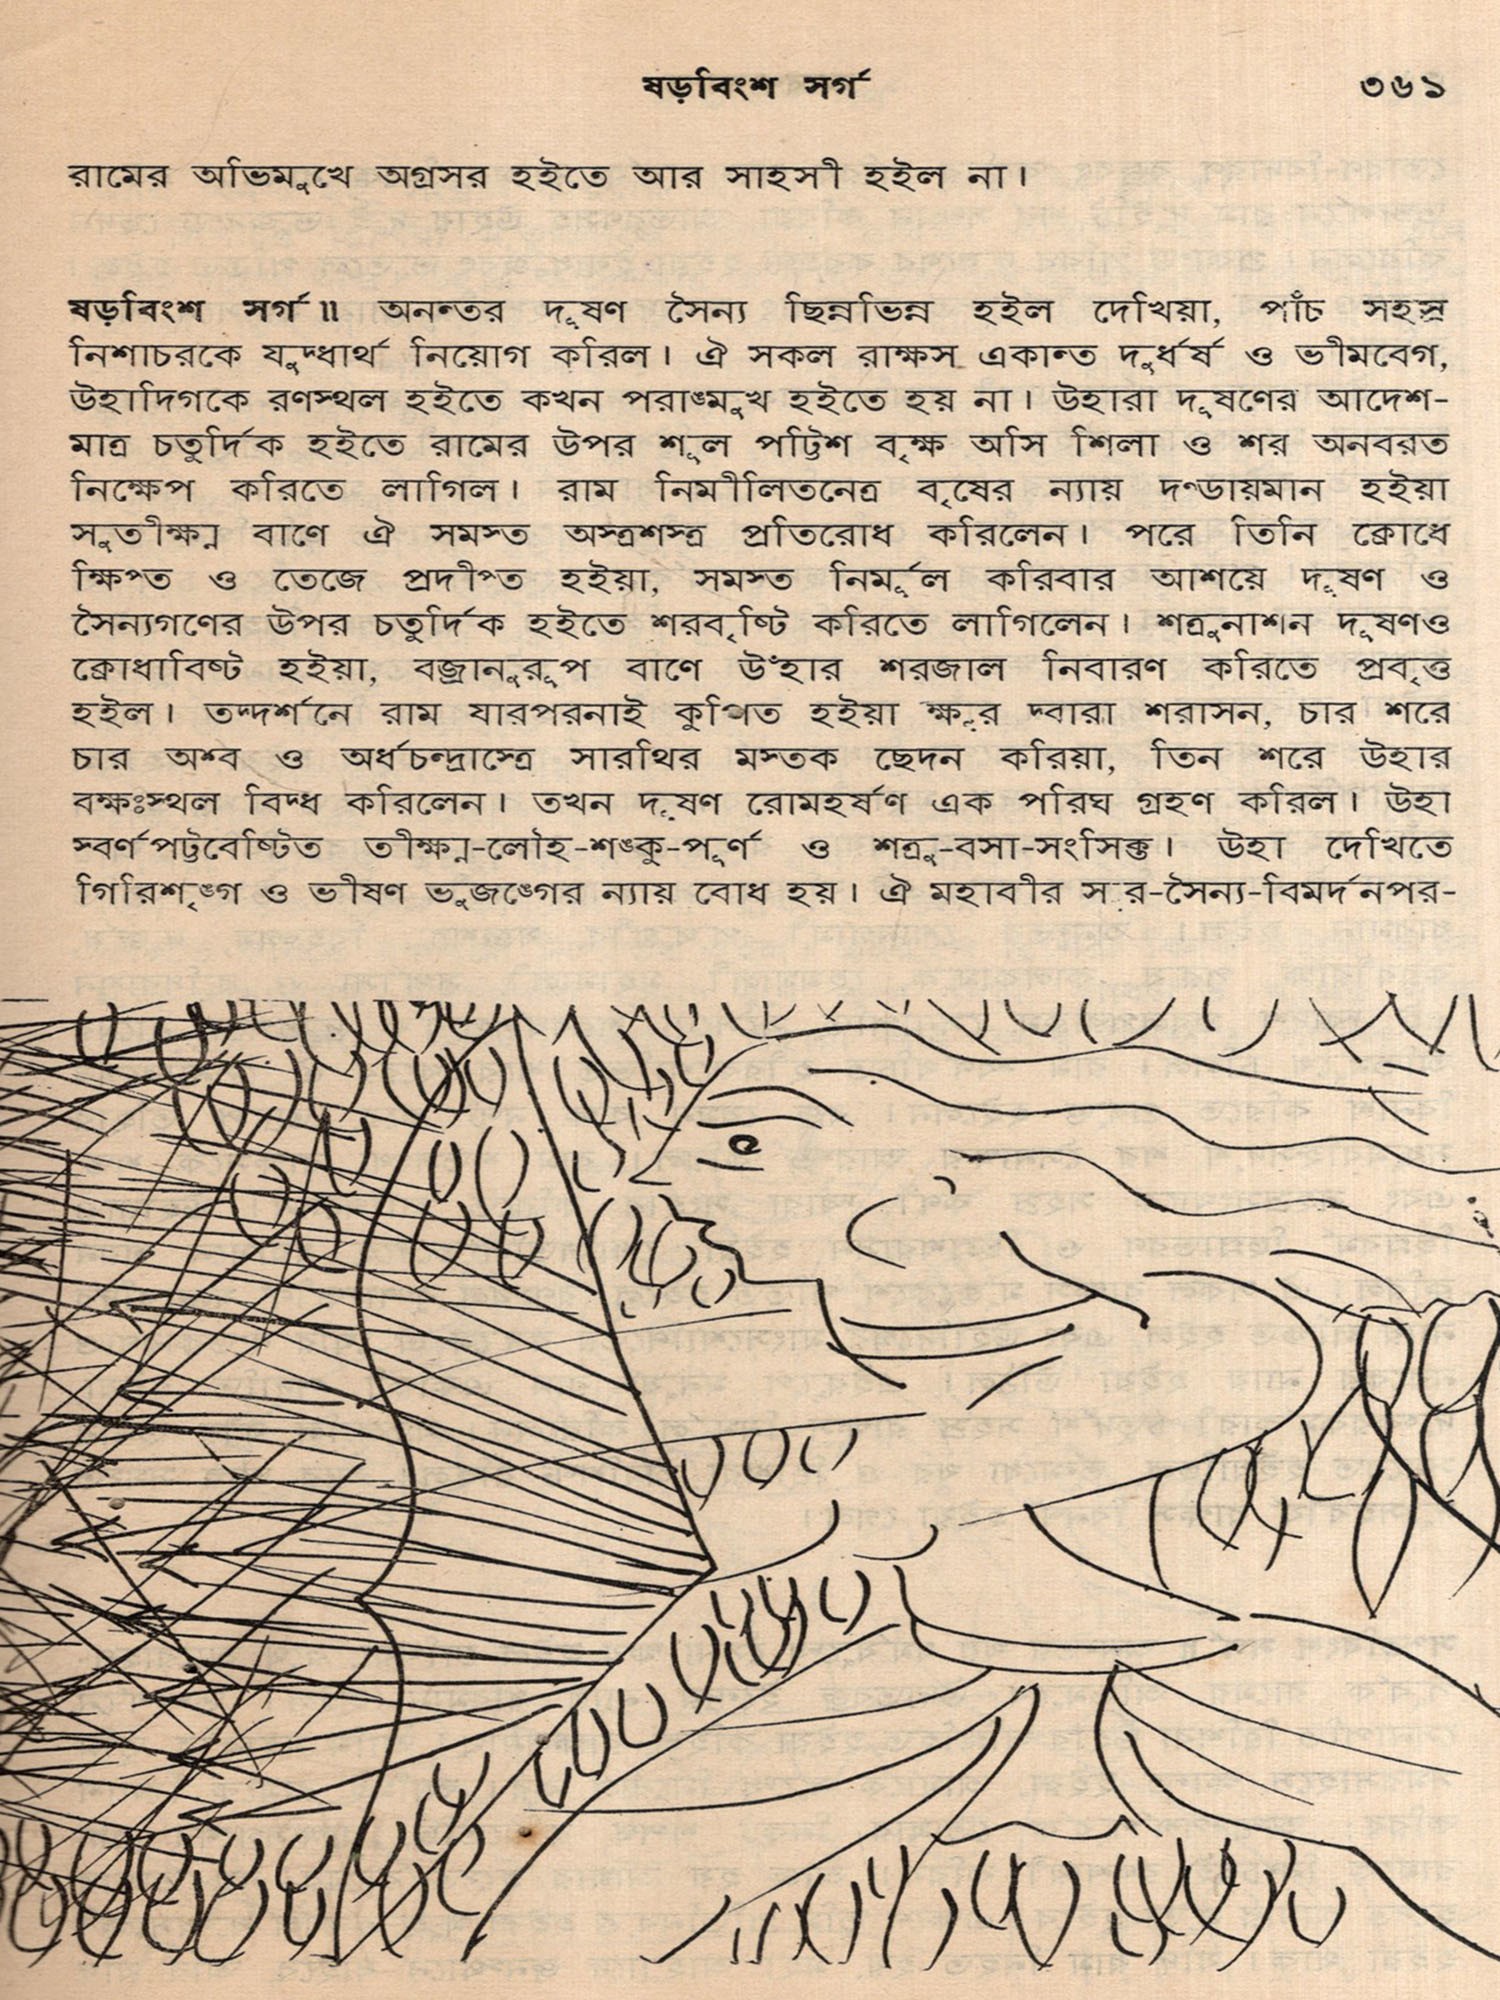 ষড়বিংশ সর্গ ৩৬১
রামের অভিমুখে অগ্রসর হইতে আর সাহসী হইল না।
ষড়বিংশ সর্গ॥ অনন্তর দূষণ সৈন্য ছিন্নভিন্ন হইল দেখিয়া, পাঁচ সহস্র
নিশাচরকে যুদ্ধার্থ নিয়োগ করিল। ঐ সকল রাক্ষস একান্ত দুর্ধর্ষ ও ভীমবেগ,
উহাদিগকে রণস্থল হইতে কখন পরাঙ্মুখ হইতে হয় না। উহারা দূষণের আদেশ-
মাত্র চতুর্দিক হইতে রামের উপর শূল পট্টিশ বৃক্ষ অসি শিলা ও শর অনবরত
নিক্ষেপ করিতে লাগিল। রাম নিমীলিতনেত্র বৃষের ন্যায় দণ্ডায়মান হইয়া
সুতীক্ষ্ণ বাণে ঐ সমস্ত অস্ত্রশস্ত্র প্রতিরোধ করিলেন। পরে তিনি ক্রোধে
ক্ষিপ্ত ও তেজে প্রদীপ্ত হইয়া, সমস্ত নির্মূল করিবার আশয়ে দূষণ ও
সৈন্যগণের উপর চতুর্দিক হইতে শরবৃষ্টি করিতে লাগিলেন। শত্রুনাশন দূষণও
ক্রোধাবিষ্ট হইয়া, বজ্রানুরূপ বাণে উঁহার শরজাল নিবারণ করিতে প্রবৃত্ত
হইল। তদ্দর্শনে রাম যারপরনাই কুপিত হইয়া ক্ষুর দ্বারা শরাসন, চার শরে
চার অশ্ব ও অর্ধচন্দ্রাস্ত্রে সারথির মস্তক ছেদন করিয়া, তিন শরে উহার
বক্ষঃস্থল বিদ্ধ করিলেন। তখন দূষণ রোমহর্ষণ এক পরিঘ গ্রহণ করিল। উহা
স্বর্ণপট্টবেষ্টিত তীক্ষ্ণ-লৌহ-শঙ্কু-পূর্ণ ও শত্রু-বসা-সংসিক্ত। উহা দেখিতে
গিরিশৃঙ্গ ও ভীষণ ভুজঙ্গের ন্যায় বোধ হয়। ঐ মহাবীর সুর-সৈন্য-বিমর্দনপর-